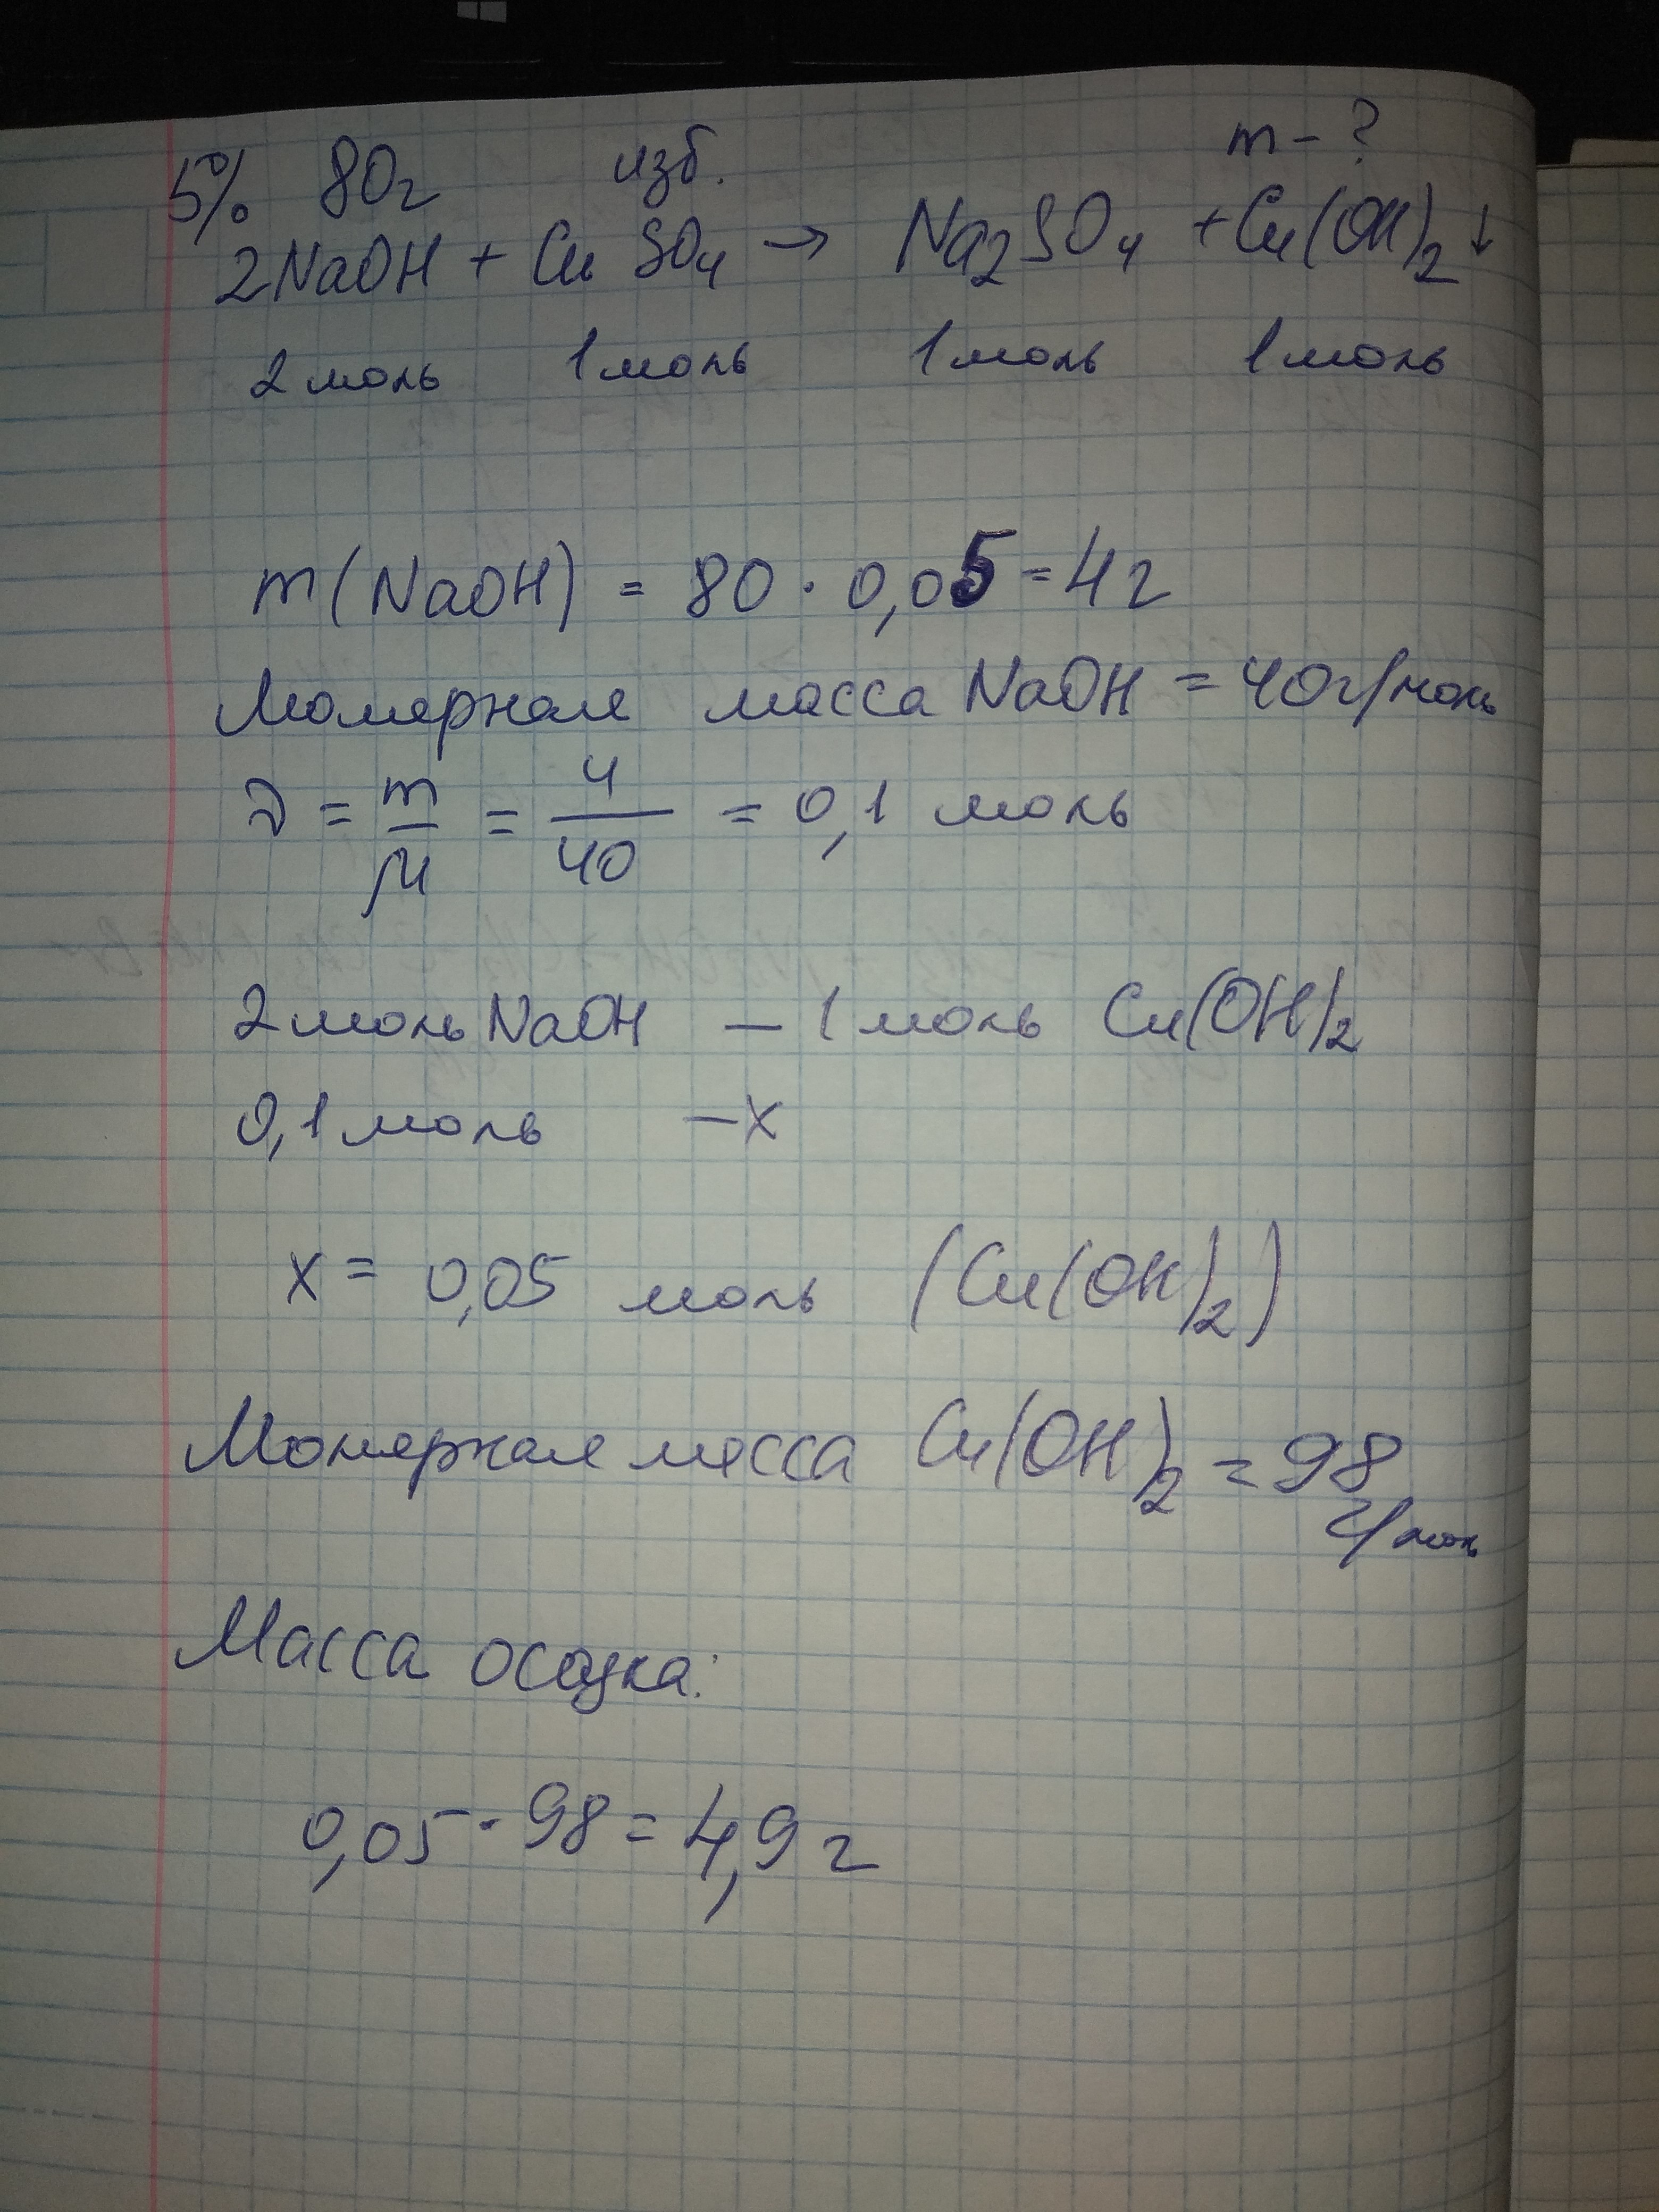 m - ?
5% 80г изб.
2NaOH + CuSO₄ → Na₂SO₄ + Cu(OH)₂↓
2 моль 1 моль 1 моль 1 моль
m(NaOH) = 80 · 0,05 = 4г
Молярная масса NaOH = 40г/моль
ν = m/μ = 4/40 = 0,1 моль
2 моль NaOH — 1 моль Cu(OH)₂
0,1 моль — x
x = 0,05 моль (Cu(OH)₂)
Молярная масса Cu(OH)₂ = 98 г/моль
Масса осадка:
0,05 · 98 = 4,9 г